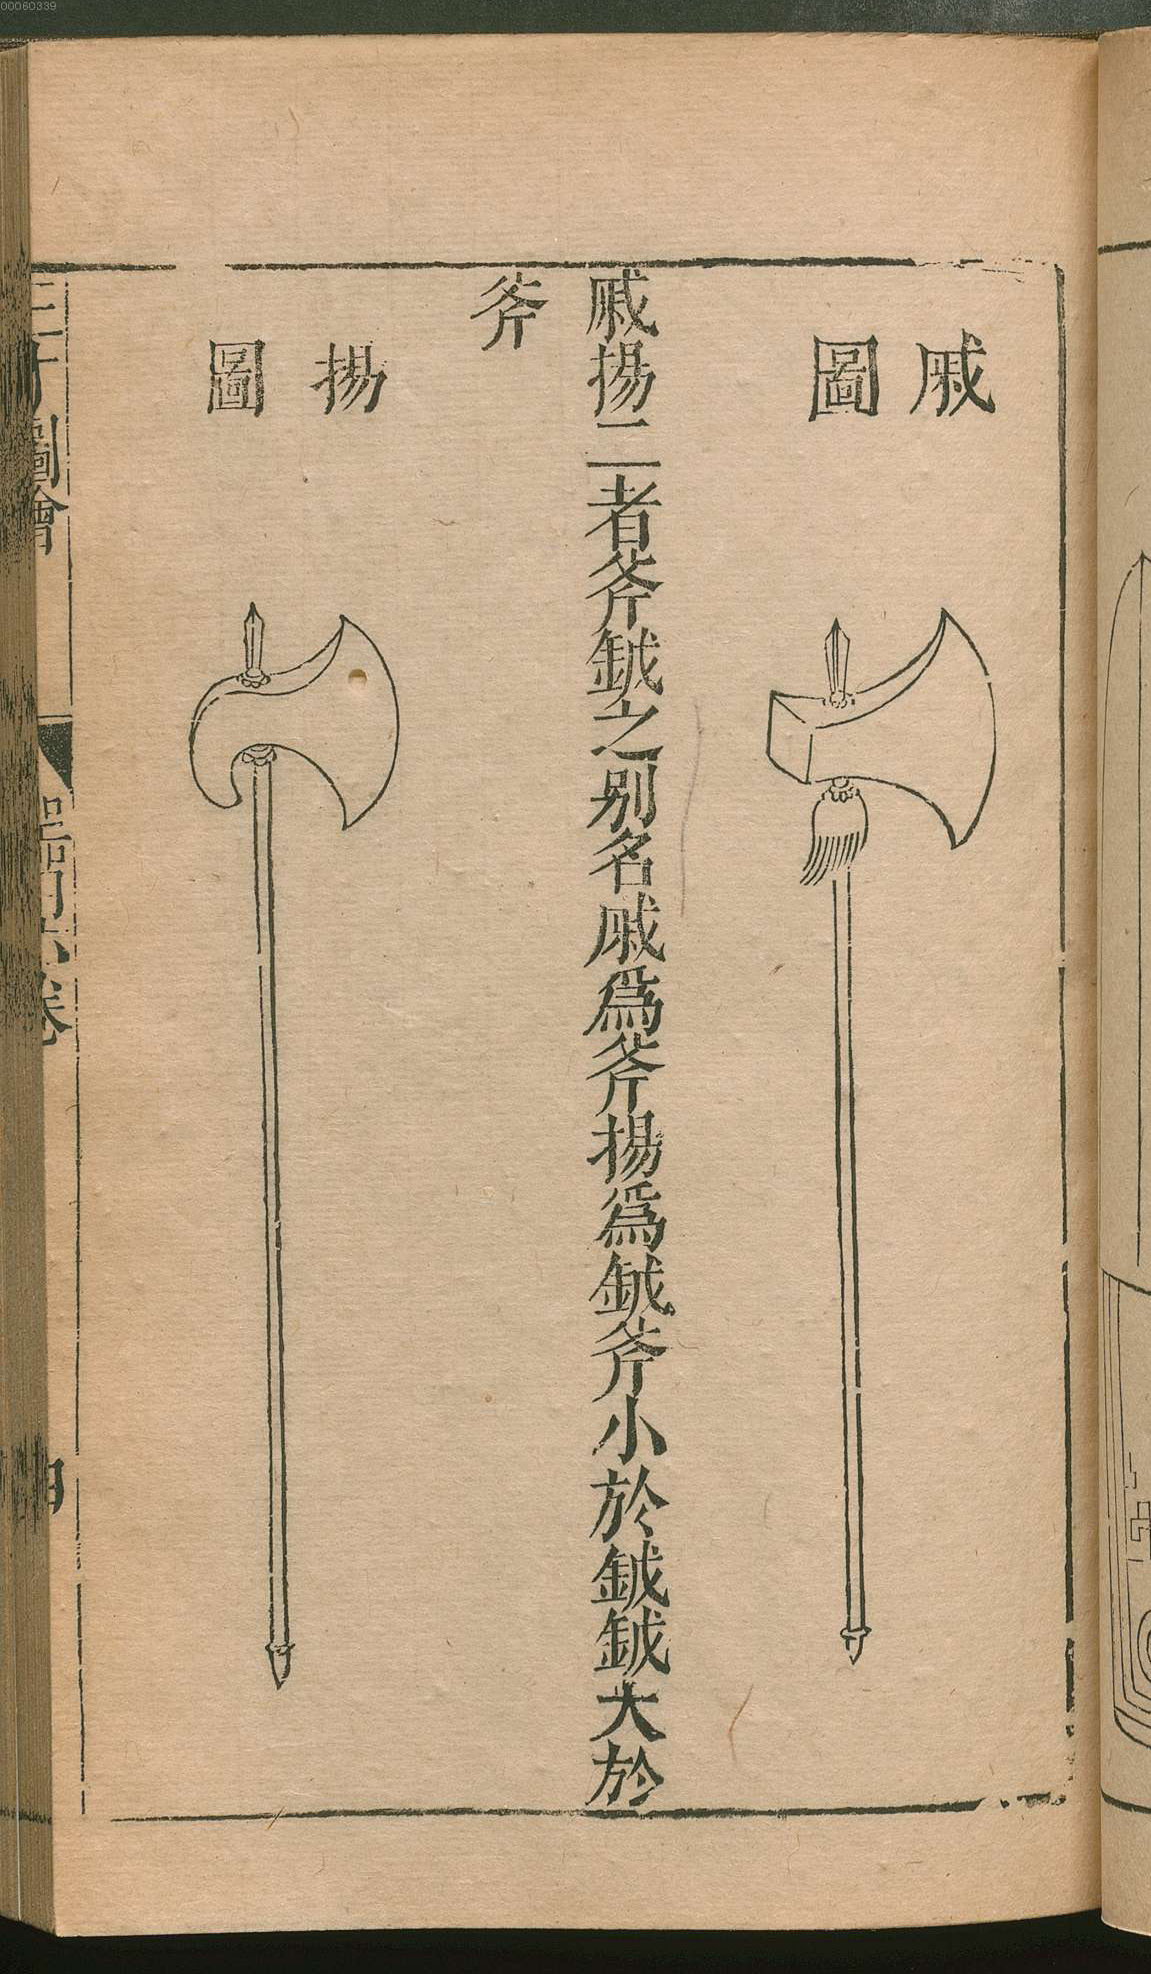 00060339
戚圖
戚揚二者斧鉞之别名戚爲斧揚爲鉞斧小於鉞鉞大於
斧
揚圖
圖會
卷